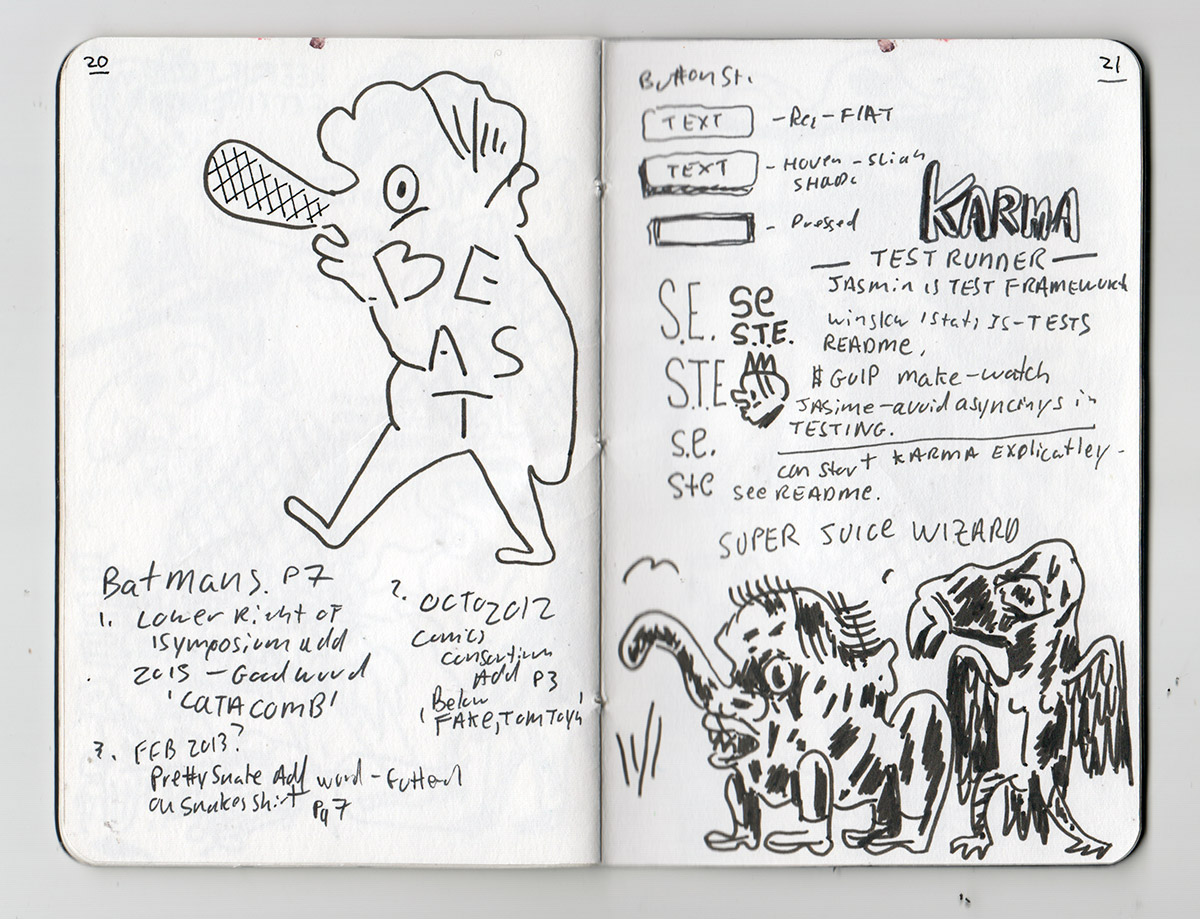 20
BE
AS
T
Batmans. P7
1. Lower Right of
1symposium add
2015 - Good word
'CATACOMB'
2. OCTO2012
Comics
consortium
Add P3
Below
'FAKE, TOM TOYH'
3. FEB 2013?
Pretty Snake Add word - Futted
on snakes shirt
Pg 7
21
Button St.
TEXT - Reg - FlAT
TEXT - Hover - Sligh
SHADE
- Pressed
KARMA
— TEST RUNNER —
JASmin is TEST FRAMEWORK
JS-TESTS
README.
$ GUlP make-watch
JASmine - avoid asyncinys in
TESTING.
can start KARMA Explicatley -
see README.
S.E.
se
S.T.E.
S.T.E
s.e.
ste
SUPER JUICE WIZARD